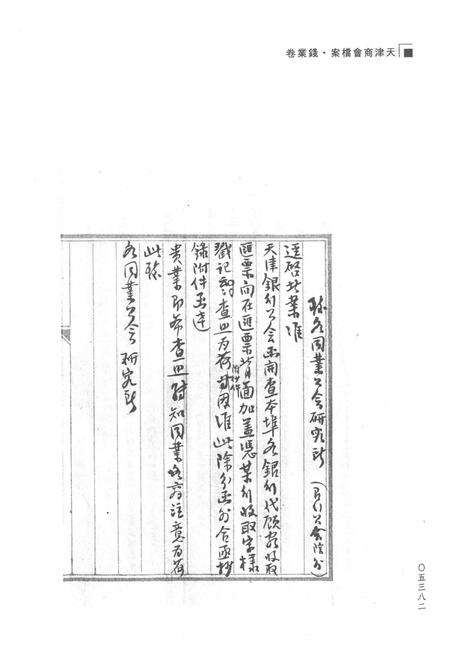 天津商會檔案·錢業卷
致各同業公會研究所
逕啓者案准
天津銀行公會函開查本埠各銀行代顧客收取
匯票向在匯票背面加蓋憑某行收取字樣
戳記 查照為荷 因准此除分函外合函抄
錄附件函達
貴業即希查照轉知同業 注意為荷
此致
各同業公會 研究所
〇五三八二